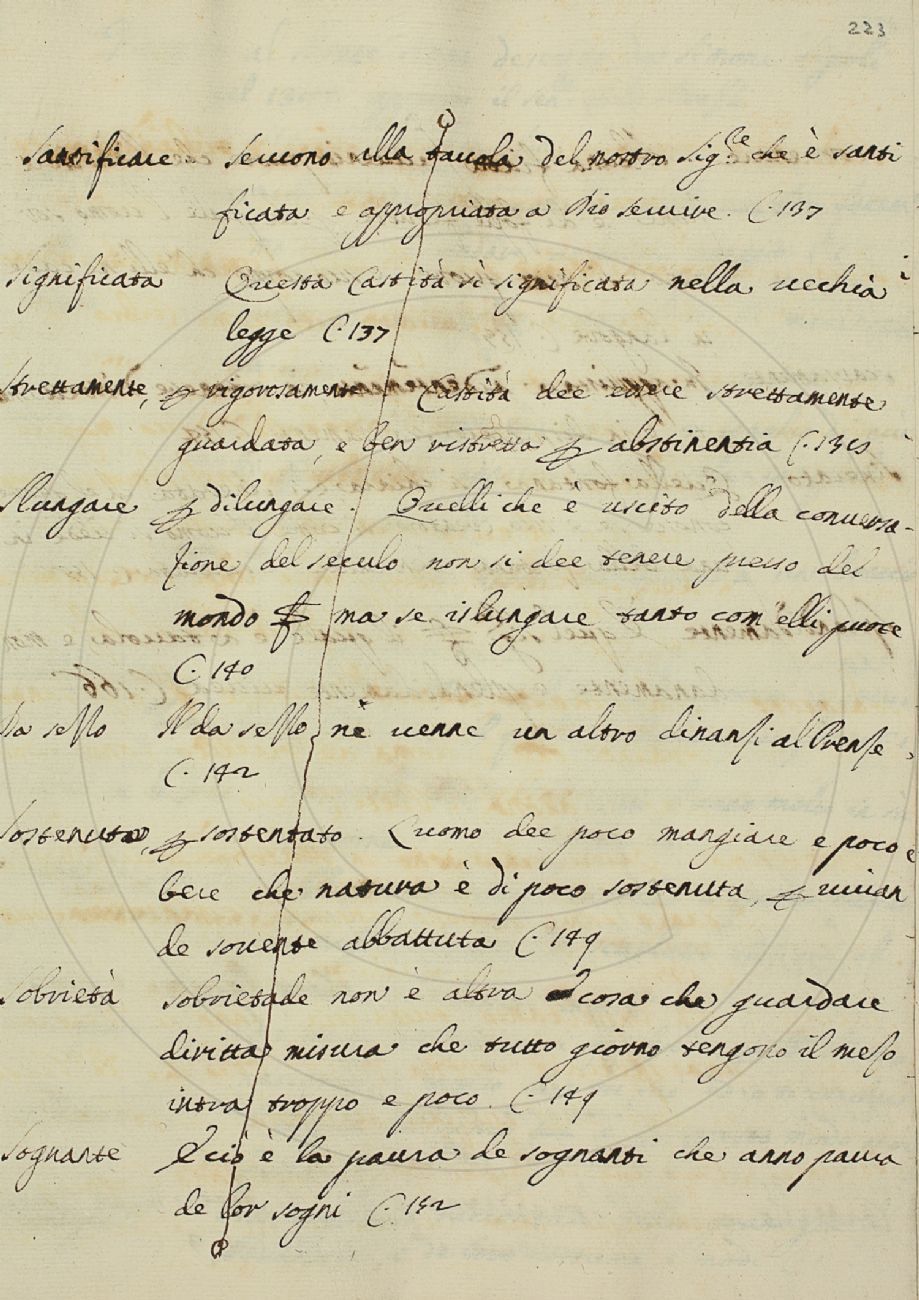 223
Santificare. Servono alla tavola del nostro Sig.re che è santi
ficata e appropriata a Dio servire. C. 137
Significata Questa Castità si significata nella vechia
legge C. 137
Strettamente, rigorosamente Castità dee essere strettamente
guardata, e ben ristretta abstinentia C. 139
Slungare dilungare. Quelli che è uscito della conversa-
zione del seculo non si dee tenere presso del
mondo ma se islungare tanto com elli puote
C. 140
Da sesso Il da sesso ne venne un altro dinansi al Prense
C. 142
Sostenuta, sostentato. L'uomo dee poco mangiare e poco
bere che natura è di poco sostenuta, vivan
de sovente abbattuta C. 149
Sobrietà sobrietade non è altra cosa che guardare
diritta misura che tutto giorno tengono il meso
intra troppo e poco. C. 149
Sognante E ciò è la paura de sognanti che anno paura
de lor sogni C. 152